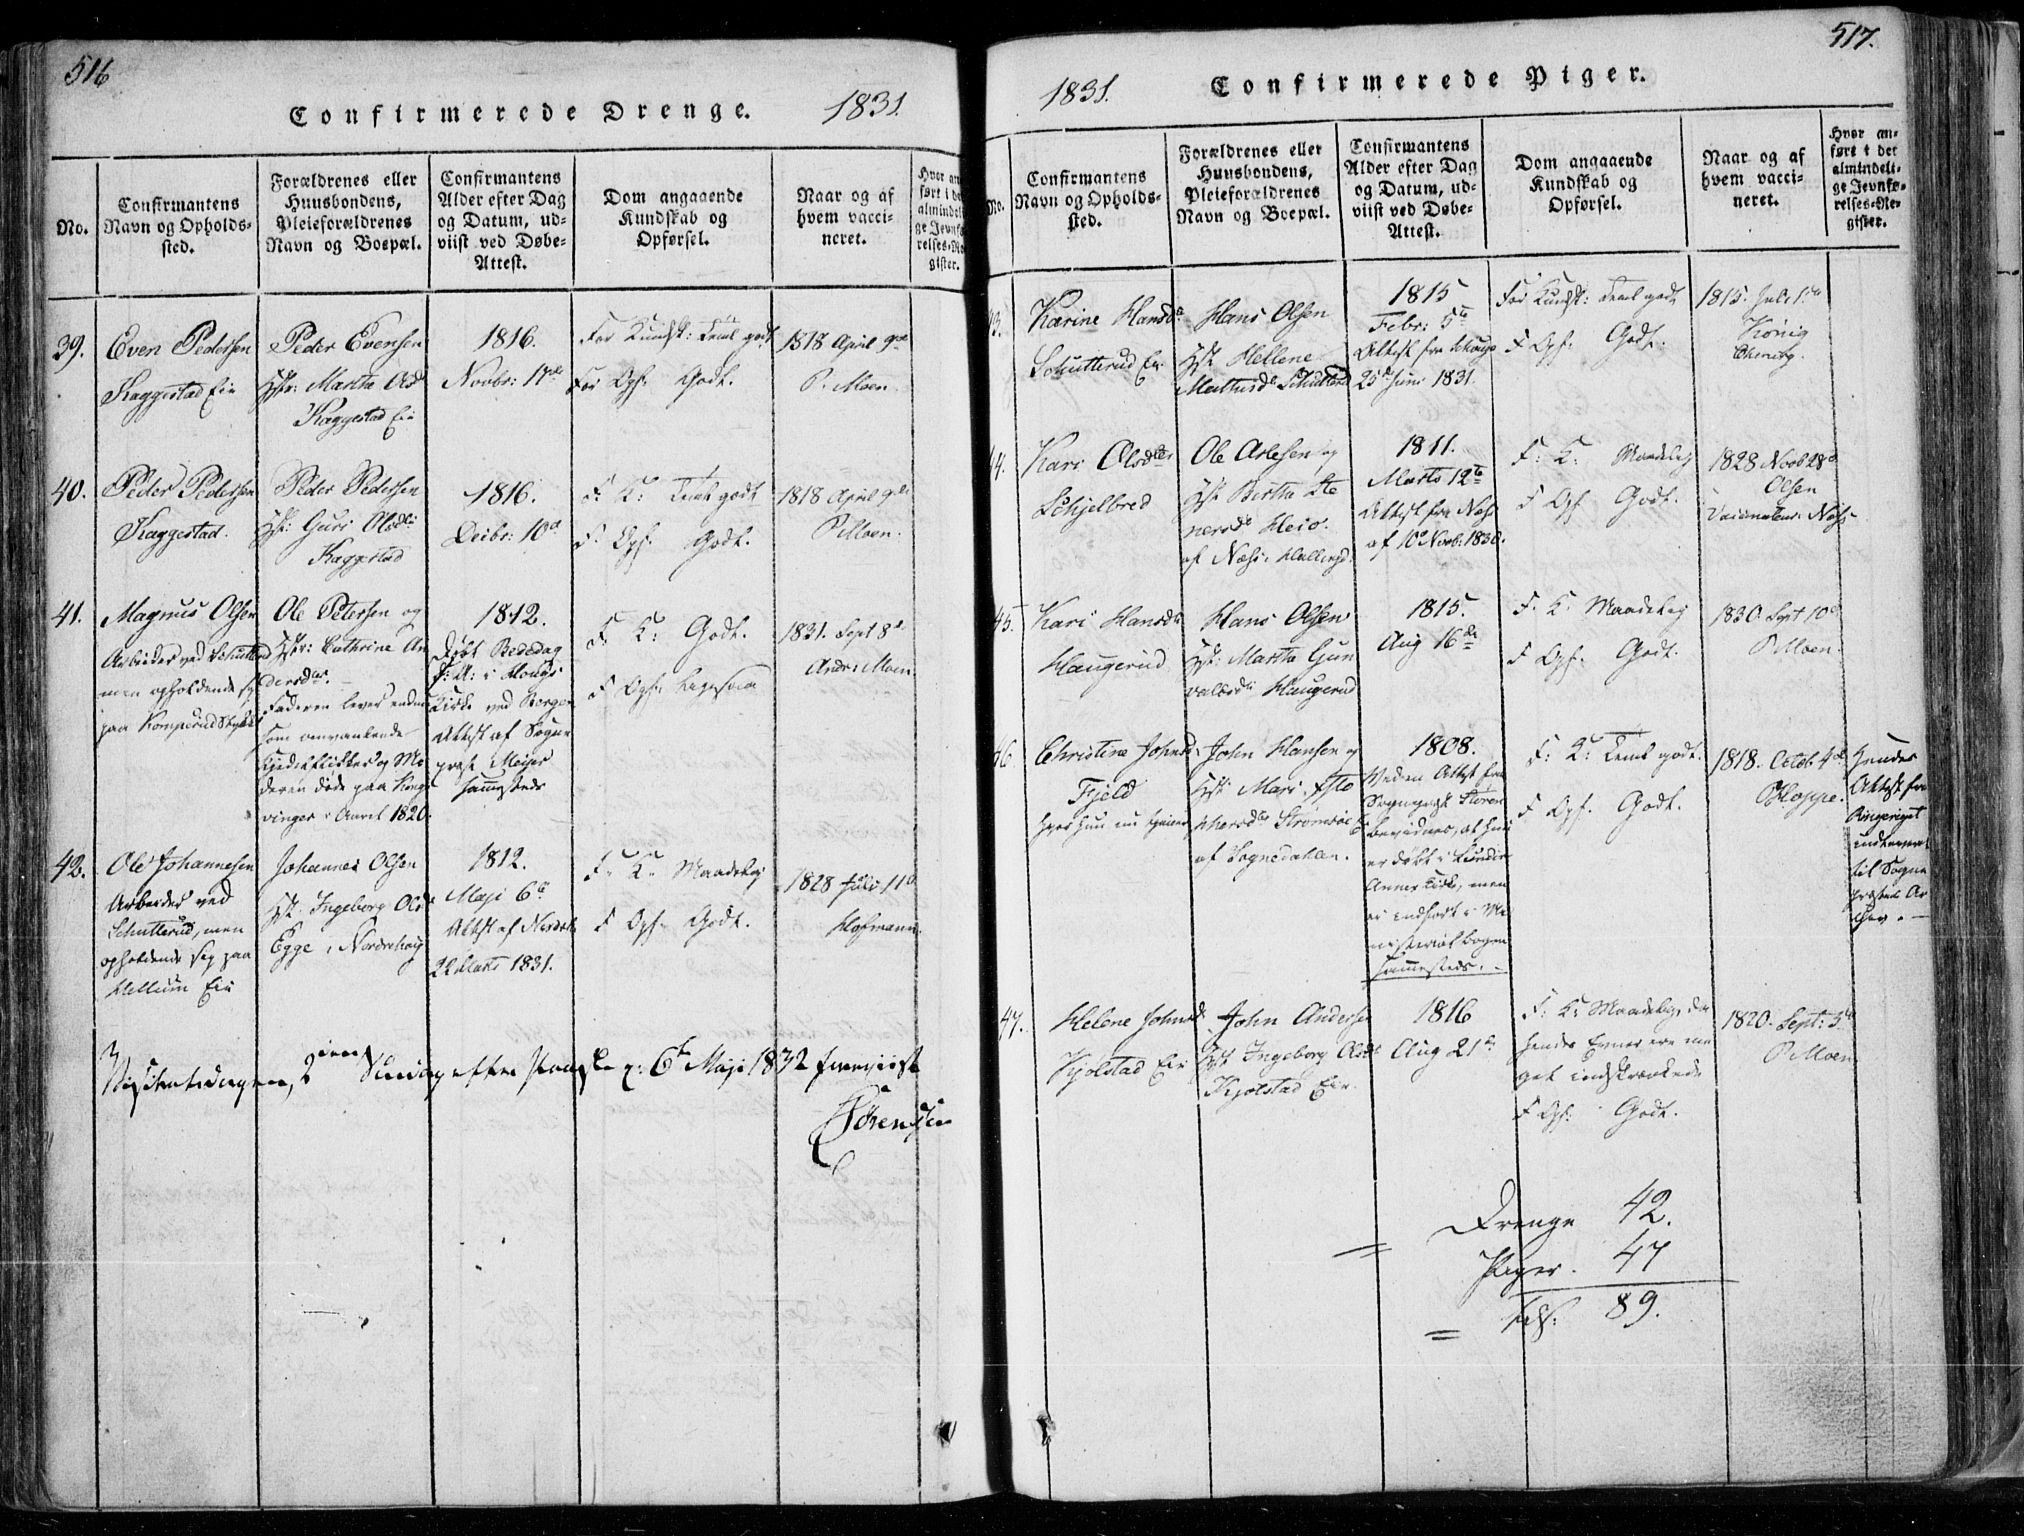 516
Confirmerede Drenge. 1831.
No.
Confirmantens
Navn og Opholds-
sted.
Forældrenes eller
Huusbondens,
Pleieforældrenes
Navn og Boepæl.
Confirmantens
Alder efter Dag
og Datum, ud-
viist ved Døbe-
Attest.
Dom angaaende
Kundskab og
Opførsel.
Naar og af
hvem vacci-
neret.
Hvor an
ført i de
almindeli
ge Jevnfø
relses-Re
gister.
39.
Even Pedersen
Kaggestad Eie
Peder Evensen
Hst: Martha
Kaggestad Eie
1816.
Novbr: 17de
For Kundsk: Teml godt
For Opf: Godt.
1818 April 9de
P. Moen.
40.
Peder Pedersen
Kaggestad.
Peder Pedersen
Hst: Guri Olsdr
Kaggestad
1816.
Decbr: 10de
F: K: Teml godt
F Opf: Godt.
1818 April 9de
P. Moen.
41.
Magnus Olsen
Arbeider ved Schutterud
men opholdende sig
paa
Ole Petersen og
Hstr: Cathrine An
dersdtr.
Faderen lever endnu
som omvankende
og Mo
deren døde paa Kongs
vinger i Aaret 1820.
1812.
Døbt Bededag
i Hougs
Kirke ved
Attest af Sogne
præst
sammesteds
F K: Godt.
F Opf:
1831. Sept 8de
Andr: Moen
42.
Ole Johannesen
Arbeider ved
Schutterud, men
opholdende sig paa
Hellum Eie
Johannes Olsen
Hst: Ingeborg Olsdr
Egge i Norderhoug
1812.
Maji 6te
Attest af Norderh:
22 Marts 1831.
F: K: Maadelig
F Opf: Godt.
1828 Juli 11te
Hofmann.
Visitatsdagen, 2den Søndag efter Paaske 6te Maji 1832
Sørensen
517.
1831. Confirmerede Piger.
No.
Confirmantens
Navn og Opholds-
sted.
Forældrenes eller
Huusbondens,
Pleieforældrenes
Navn og Boepæl.
Confirmantens
Alder efter Dag
og Datum, ud-
viist ved Døbe-
Attest.
Dom angaaende
Kundskab og
Opførsel.
Naar og af
hvem vacci-
neret.
Hvor an-
ført i det
almindeli-
ge Jevnfø-
relses-Re-
gister.
43.
Karine Hansdr
Schutterud Eie
Hans Olsen
Hst Hellene
Mathisdr Schutterud
1815
Febr: 5te
Attest fra
25de Juni 1831.
For Kundsk: Teml godt
F Opf: Godt.
1815. Juli 1ste
König
44.
Kari Olsdtr
Schjelbred
Ole Arlesen og
Hst Birthe Ste
nersdr Heio.
af Næss i Hallingd.
1811.
Marts 12te
Attest fra Næss
af 10de Novb: 1830.
F. K: Maadelig
F Opf Godt.
1828 Novb 28de
Olsen
Vaccinateur i Næss
45.
Kari Hansdr
Haugerud
Hans Olsen
Hst: Martha Gun
valdsdr Haugerud
1815.
Aug 16de
F. K: Maadelig
F Opf: Godt.
1830. Sept 10de
P Moen.
46.
Christine Johnsdr
Fjeld
hvor hun nu tjener
John Hansen og
Hst: Mari
Strømsøe
af Sognedahlen.
1808.
Veden Attest fra
Sognepræst
bevidnes, at hun
er døbt i
Annex Kirke, men
ei indført i Mi
nisterial bogen
sammesteds.
F: K: Teml godt.
F Opf: Godt.
1818. Octob 4de
Hoppe.
Hendes
Attest fra
Ringeriget
indleveret
til Sogne
præsten
47.
Helene Johnsdr
Kjølstad Eie
John Andersen
Hst Ingeborg Olsdr
Kjølstad Eie.
1816
Aug 21de
F: K: Maadelig, da
hendes Evner ere me
get indskrænkede
F Opf: Godt.
1820. Sept: 3de
P. Moen
Drenge 42.
Piger. 47
89.